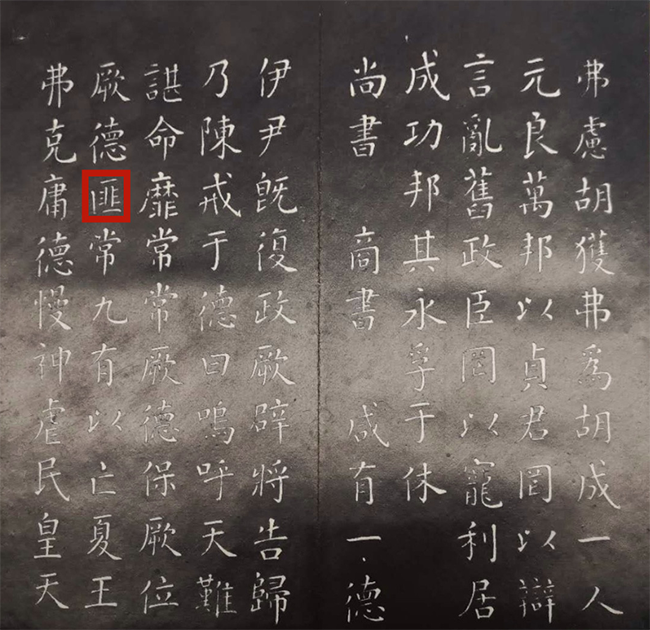 弗慮胡獲弗為胡成一人
元良萬邦以貞君罔以辯
言亂舊政臣罔以寵利居
成功邦其永孚于休
尚書 商書 咸有一德
伊尹既復政厥辟將告歸
乃陳戒于德曰嗚呼天難
諶命靡常常厥德保厥位
厥德匪常九有以亡夏王
弗克庸德慢神虐民皇天